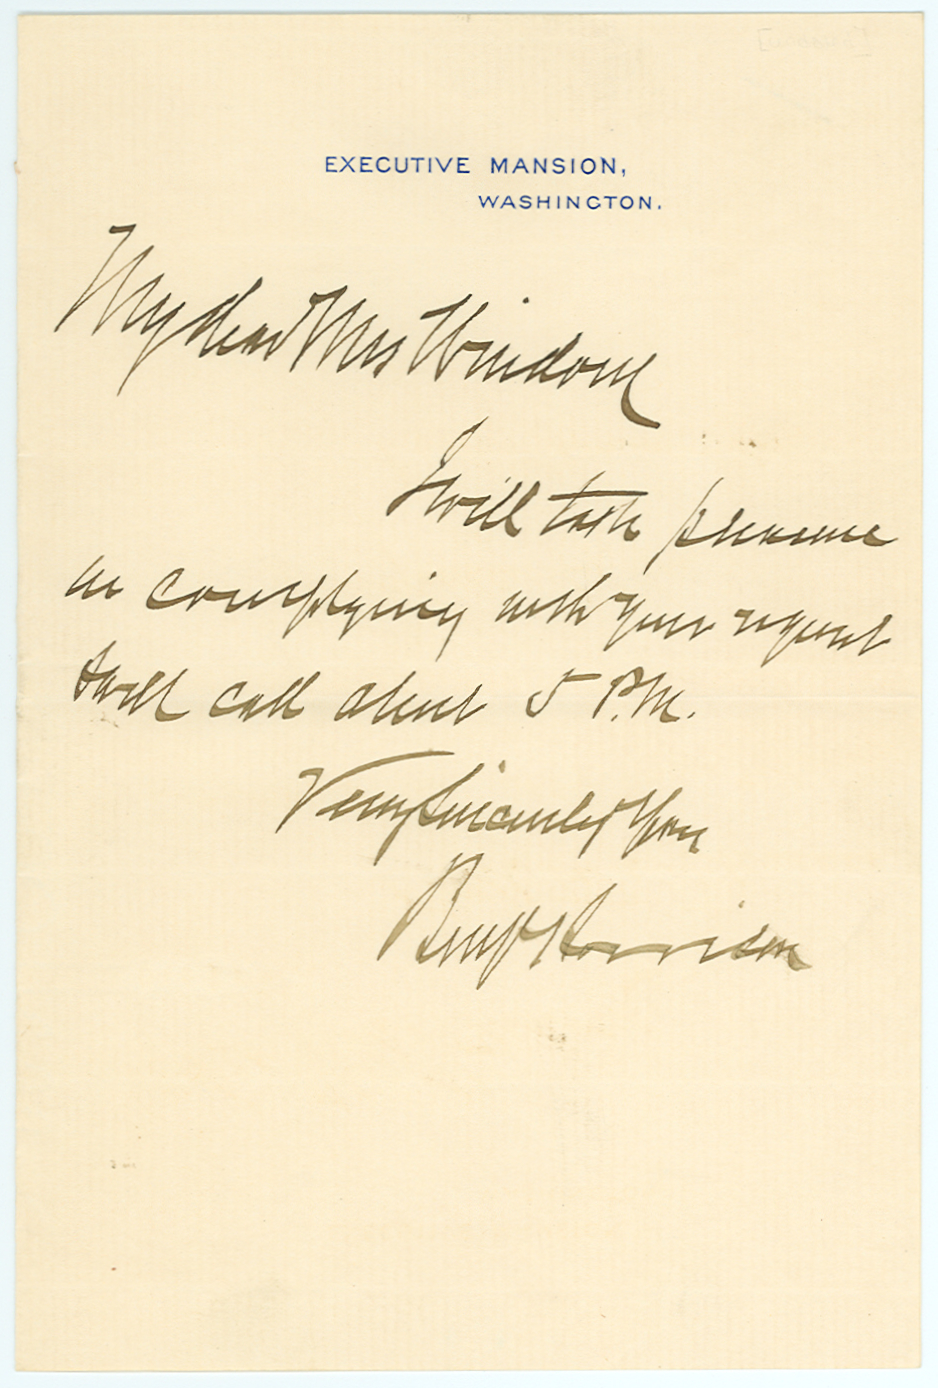 EXECUTIVE MANSION,
WASHINGTON.
My dear Mrs Windom
I will take pleasure
in complying with your request
& will call about 5 P.M.
Very Sincerely Yours
Benj Harrison